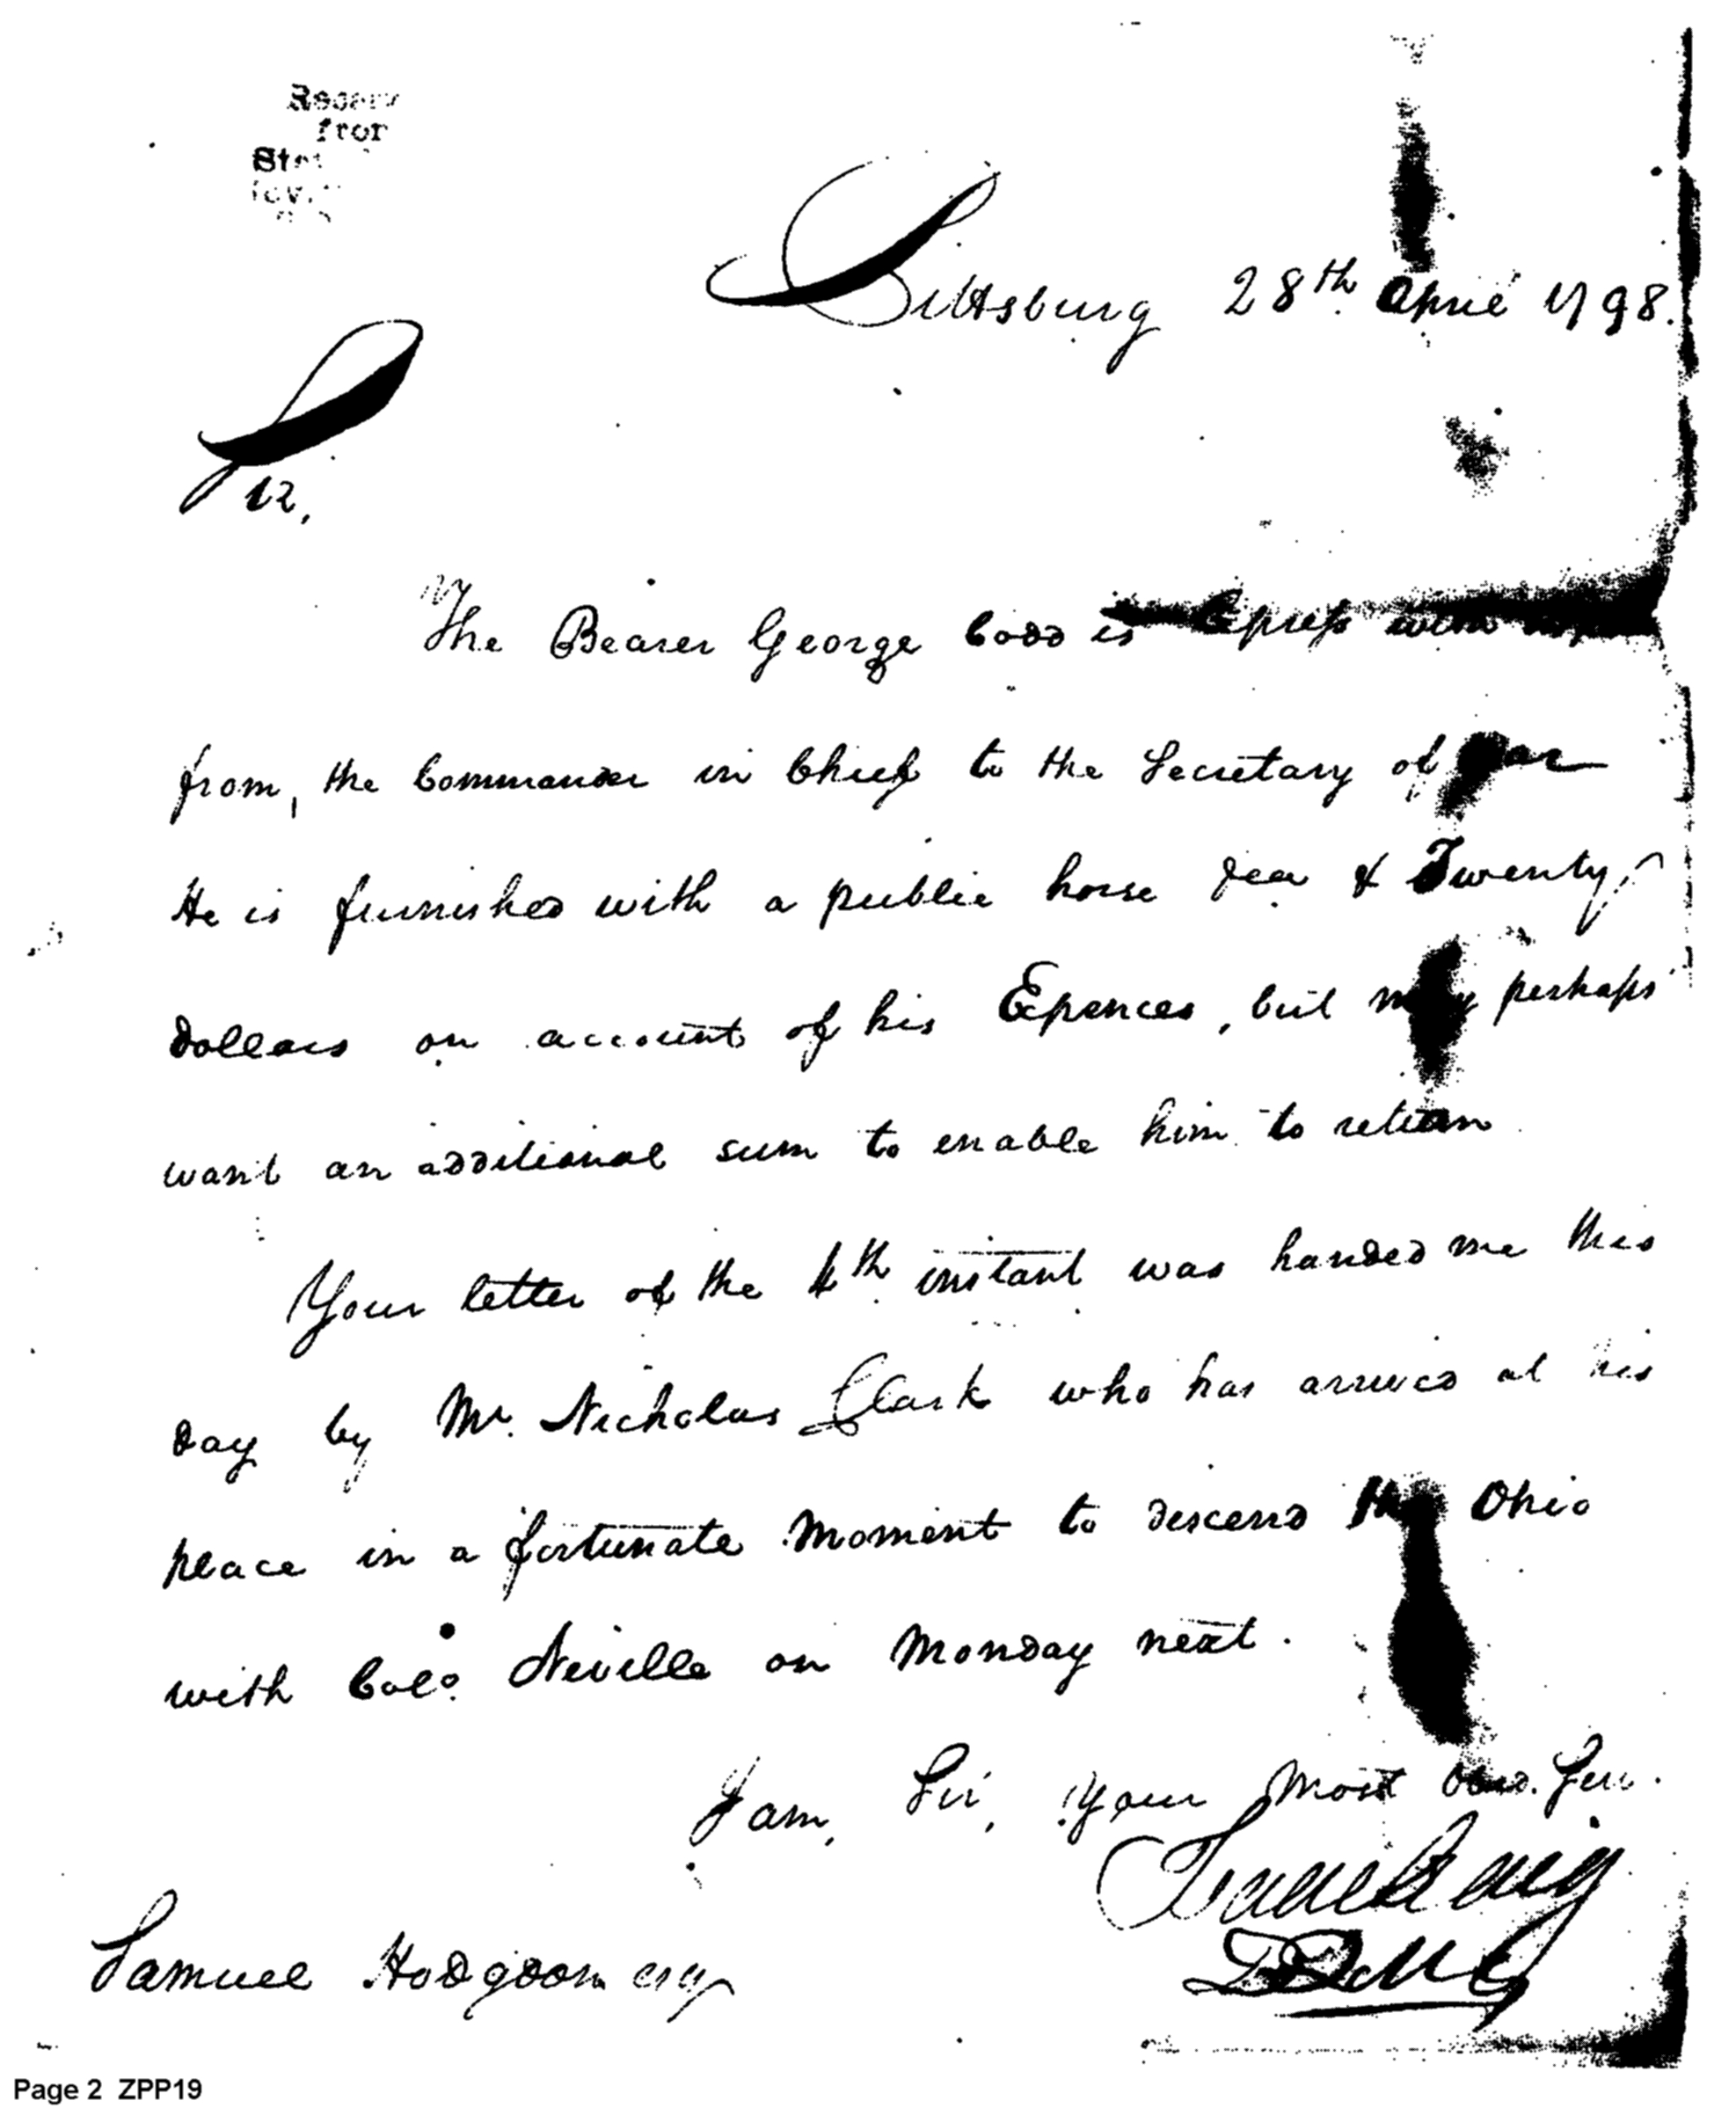 Pittsburg 28th April 1798.
Sir,
The Bearer George Codd is Express with
from, the Commander in Chief to the Secretary of War
He is furnished with a public horse & Twenty
Dollars on account of his Expences, but may perhaps
want an additional sum to enable him to return
Your letter of the 4th instant was handed me this
day by Mr. Nicholas Clark who has arrived at this
place in a fortunate Moment to descend the Ohio
with Colo. Neville on Monday next.
I am, Sir, Your Most Obed. Ser.
Isaac Craig
DQMG
Samuel Hodgdon esq
Page 2 ZPP19